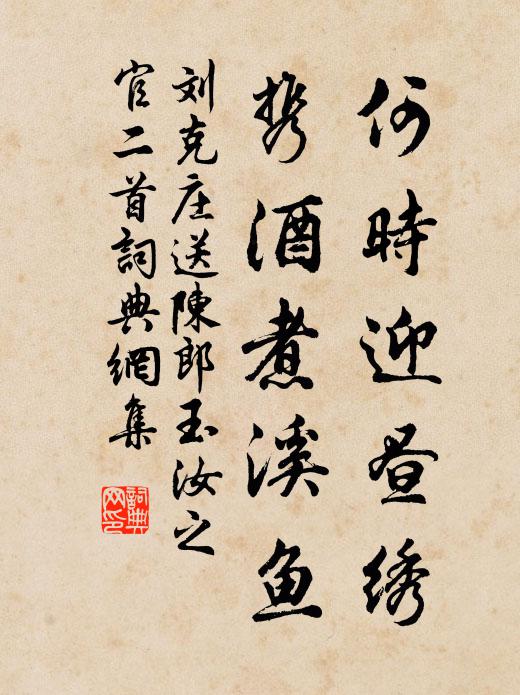 何時迎昼绣
携酒煮溪鱼
刘克庄送陳郎玉汝之
官二首詞典網集
詞典
网印